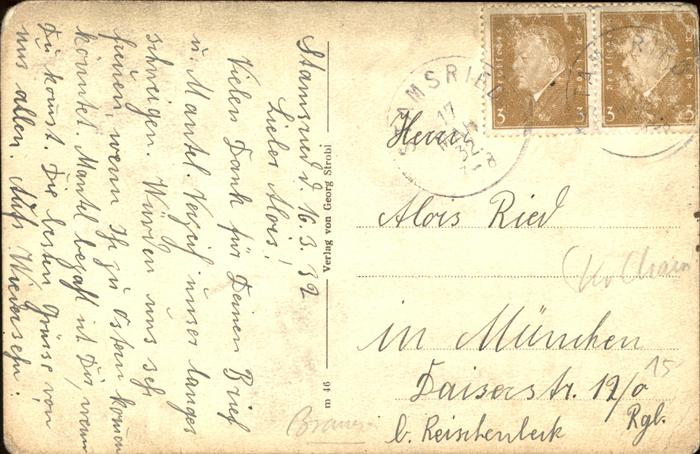 Stamsried d. 16.3.32
Lieber Alois!
Vielen Dank für Deinen Brief
u. Mantel. Verzeih unser langes
schweigen. Würden uns sehr
freuen, wenn Ihr zu Ostern kommen
könntet. Mantel bezahlt ich Dir, wenn
Du kommst. Die besten Grüsse von
uns allen. Aufs Wiedersehn!
Verlag von Georg Strobl
m 46
STAMSRIED
17
Deutsches
3 3
3 3
Herrn
Alois Ried
in München
Daiserstr. 12/0
b. Reischenbeck Rgb.
15